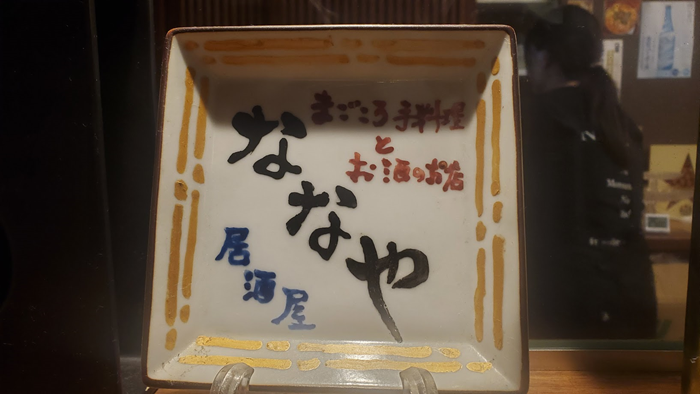 まごころ手料理
と
お酒のお店
ななや
居酒屋